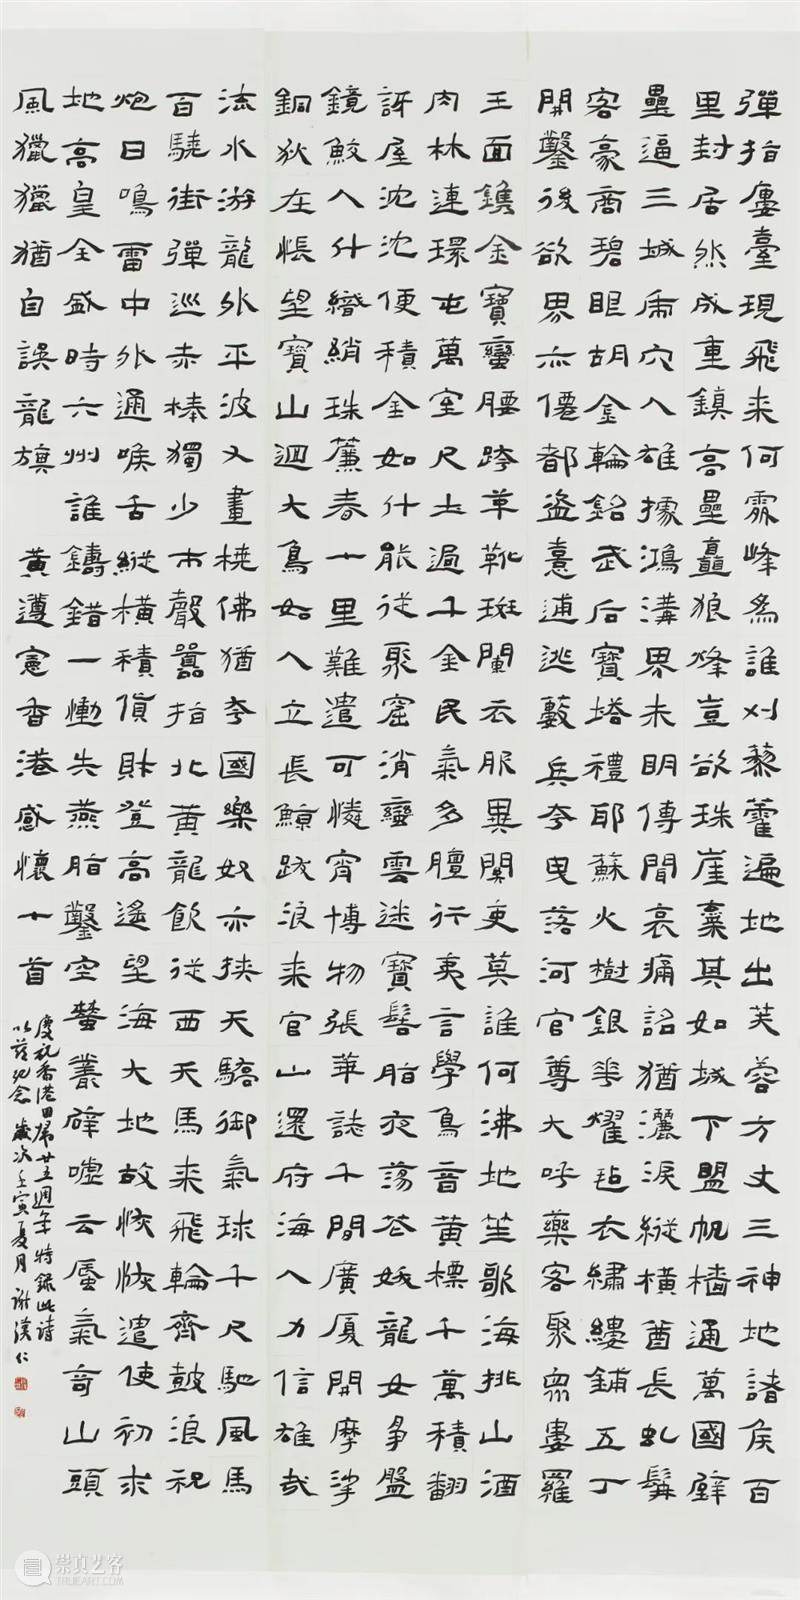 彈指樓臺現飛来何處峰為誰刈藜藿遍地出芙蓉方丈三神地諸侯百
里封居然成重鎮高壘矗狼烽豈欲珠崖棄其如城下盟帆檣通萬國壁
壘逼三城虎穴人雄據鴻溝界未明傳聞哀痛詔猶灑淚縱橫酋長虬髯
客豪商碧眼胡金輪銘武后寶塔禮耶蘇火樹銀花耀氈衣繡縷鋪五丁
開鑿後欲界亦僊都盜喜逋逃藪兵夸曳落河官尊大呼藥客聚衆婁羅
王面鐫金寶蠻腰跨革靴斑闌衣服異關吏莫誰何沸地笙歌海排山酒
肉林連環屯萬室尺土過千金民氣多羶行夷言學鳥音黃標千萬積翻
訝屋沈沈便積金如什能從聚窟消蠻雲迷寶髻脂夜蕩花妖龍女爭盤
鏡鮫人什織綃珠簾春十里難遣可憐宵博物張華誌千間廣厦開摩挲
銅狄在悵望寶山迴大鳥如人立長鯨跋浪来官山還府海人力信雄哉
流水游龍外平波又畫橈佛猶夸國樂奴亦挾天驕御氣球千尺馳風馬
百驍街彈巡赤棒獨少市聲囂指北黃龍飲從西天馬来飛輪齊鼓浪祝
炮日鳴雷中外通喉舌縱橫積貨財登高遙望海大地故恢恢遣使初求
地高皇全盛時六州誰鑄錯一慟失燕脂鑿空蠶叢辟噓云蜃氣奇山頭
風獵獵猶自誤龍旗 黃遵憲香港感懷十首
慶祝香港回歸廿五週年特錄此詩
以茲紀念 歲次壬寅夏月 謝漢仁
崇真艺客
TRUEART.COM